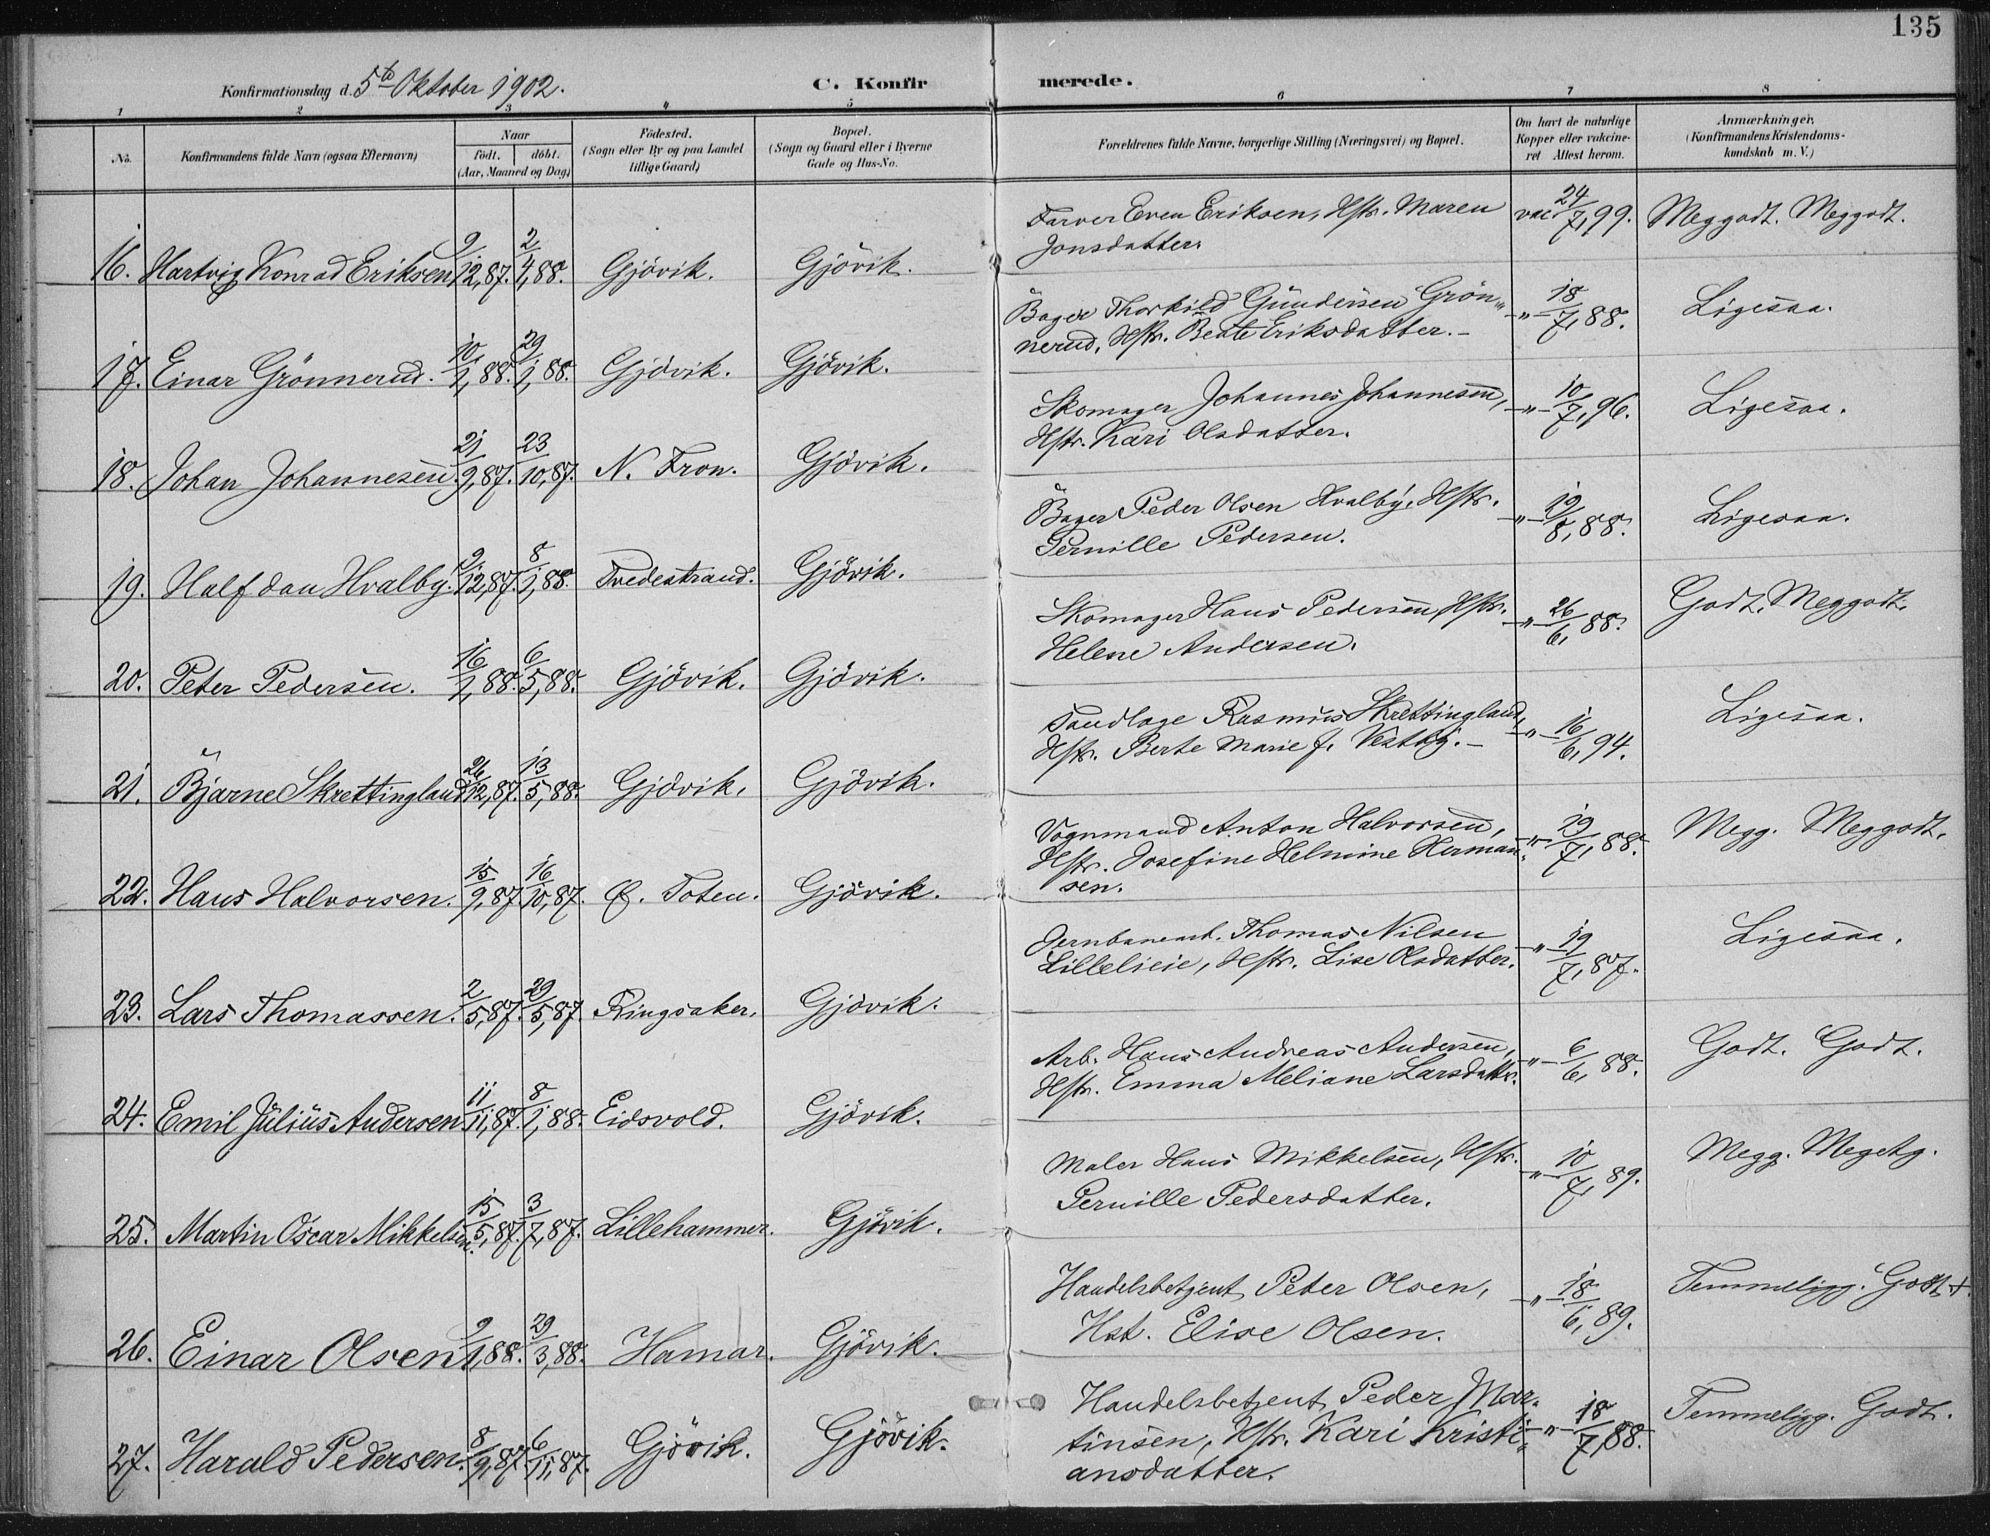 135
Konfirmationsdag d. 5te Oktober 1902.
C. Konfirmerede.
1 2 3 4 5 6 7 8
No.
Konfirmandens fulde Navn (ogsaa Efternavn)
Naar
födt. döbt.
(Aar, Maaned og Dag)
Födested.
(Sogn eller By og paa Landet
tillige Gaard)
Bopæl.
(Sogn og Gaard eller i Byerne
Gade og Hus-No.
Forældrenes fulde Navne, borgerlige Stilling (Næringsvei) og Bopæl.
Om havt de naturlige
Kopper eller vakcine-
ret Attest herom.
Anmærkninger.
(Konfirmandens Kristendoms-
kundskab m. V.)
16. Hartvig Konrad Eriksen 9/12,87. 2/4,88. Gjövik. Gjövik.
Farver Even Eriksen, Hstr. Maren
Jonsdatter.
vac 24/7,99. Meggodt. Meggodt.
17. Einar Grönnerud. 10/1,88. 29/1,88. Gjövik. Gjövik.
Bager Thorkild Gundersen Grön-
nerud, Hstr. Beate Eriksdatter. –
–"– 18/7,88. Ligesaa.
18. Johan Johannesen. 21/9,87. 23/10,87. N. Fron. Gjövik.
Skomager Johannes Johannesen,
Hstr. Kari Olsdatter.
–"– 10/7,96. Ligesaa.
19. Halfdan Hvalby. 9/12,87. 8/1,88. Tvedestrand. Gjövik.
Bager Peder Olsen Hvalby, Hstr.
Pernille Pedersen.
–"– 19/8,88. Ligesaa.
20. Peter Pedersen. 16/1,88. 6/5,88. Gjövik. Gjövik.
Skomager Hans Pedersen, Hstr.
Helene Andersen.
–"– 26/6,88. Godt. Meggodt.
21. Bjarne Skrettingland 26/12,87. 13/5,88. Gjövik. Gjövik.
Tandlæge Rasmus Skrettingland,
Hstr. Berte Marie f. Vestby. –
–"– 16/6,94. Ligesaa.
22. Hans Halvorsen. 15/9,87. 16/10,87. Ø. Toten. Gjövik.
Vognmand Anton Halvorsen,
Hstr. Josefine Helmine Herman-
sen.
–"– 19/7,88. Megg. Meggodt.
23. Lars Thomassen. 2/5,87. 29/5,87. Ringsaker. Gjövik.
Jernbanearb. Thomas Nilsen
Lillelieie, Hstr. Lise Olsdatter.
–"– 19/7,87. Ligesaa.
24. Emil Julius Andersen 11/11,87. 8/1,88. Eidsvold. Gjövik.
Arb. Hans Andreas Andersen,
Hstr. Emma Meliane Larsdattr.
–"– 6/6,88. Godt. Godt.
25. Martin Oscar Mikkelsen. 15/5,87. 3/7,87. Lillehammer. Gjövik.
Maler Hans Mikkelsen, Hstr.
Pernille Pedersdatter.
–"– 10/7,89. Megg. Megetg.
26. Einar Olsen 9/1,88. 29/3,88. Hamar. Gjövik.
Handelsbetjent Peter Olsen,
Hst. Elise Olsen.
–"– 18/6,89. Temmeligg. Godt +.
27. Harald Pedersen. 8/9,87. 6/11,87. Gjövik. Gjövik.
Handelsbetjent Peder Mar-
tinsen, Hstr. Kari Kristi-
ansdatter.
–"– 18/7,88. Temmeligg. Godt.